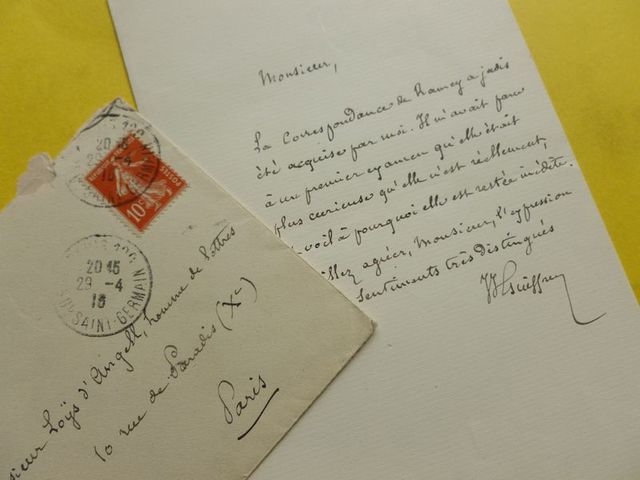 Monsieur,
La Correspondance de Ramey a jadis
été acquise par moi. Il m'avait paru
à un premier examen qu'elle était
plus curieuse qu'elle n'est réellement,
voilà pourquoi elle est restée inédite.
agréer, Monsieur, l'expression
sentiments très distingués
20 45
29 -4
16
SAINT-GERMAIN
POSTES
10c
20 45
29 -4
16
SAINT-GERMAIN
Loÿs d'Angell, homme de lettres
10 rue de Paradis (Xe)
Paris